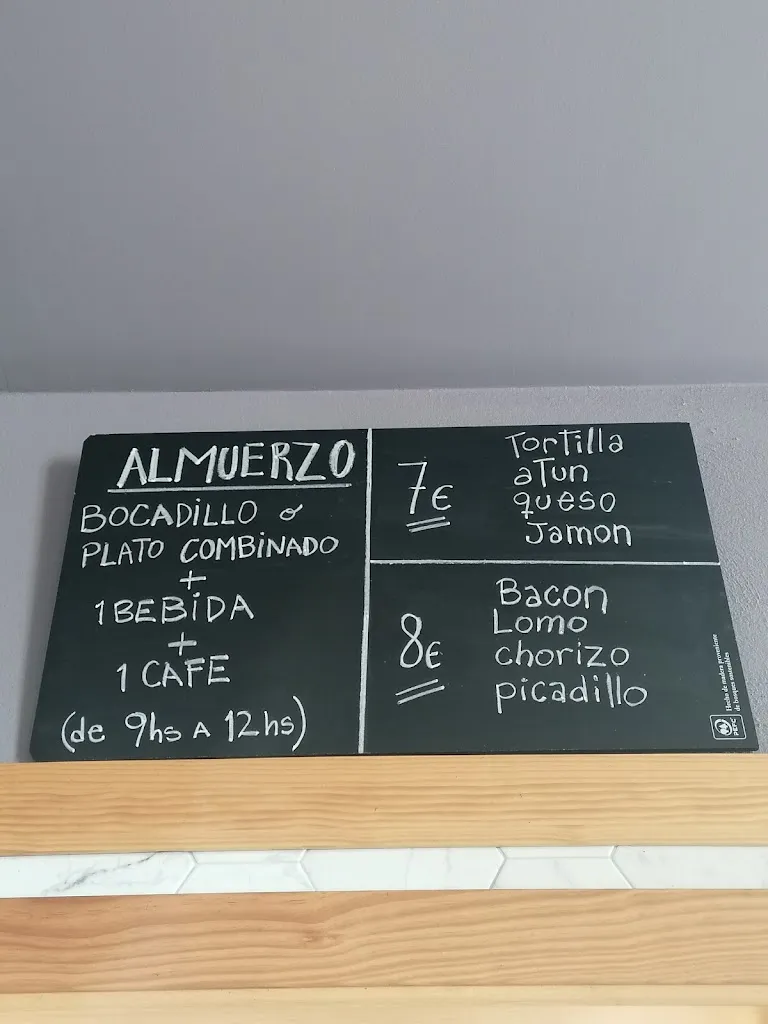 ALMUERZO
BOCADILLO o
PLATO COMBINADO
+
1 BEBIDA
+
1 CAFE
(de 9hs A 12hs)
7€
Tortilla
aTun
queso
Jamon
8€
Bacon
Lomo
chorizo
picadillo
Hecho de madera proveniente
de bosques sostenibles
PEFC